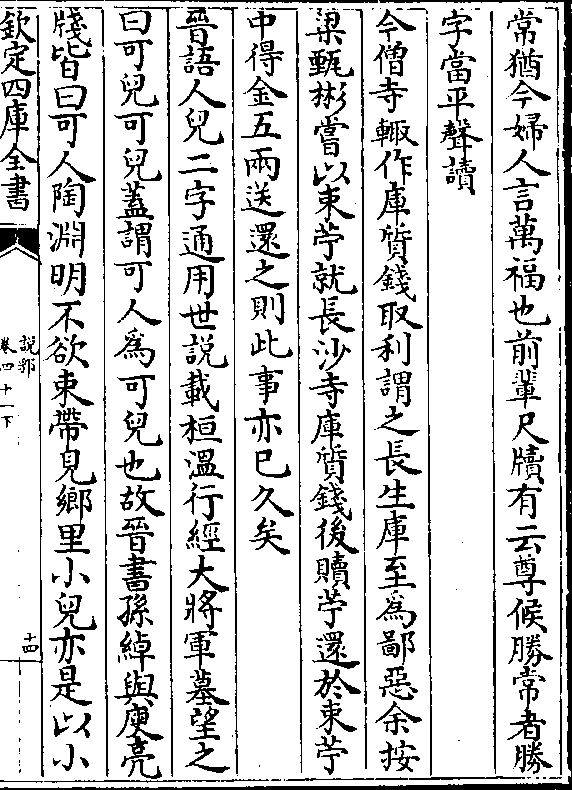 常猶今婦人言萬福也前輩尺牘有云尊候勝常者勝
字當平聲讀
今僧寺輙作庫質錢取利謂之長生庫至為鄙惡余按
梁甄彬嘗以束苧就長沙寺庫質錢後贖苧還於束苧
中得金五兩送還之則此事亦已久矣
晉語人兒二字通用世說載桓温行經大將軍墓望之
曰可兒可兒葢謂可人為可兒也故晉書孫綽與庾亮
牋皆曰可人陶淵明不欲束帶見鄉里小兒亦是以小
欽定四庫全書
說郛
卷四十一下
十四